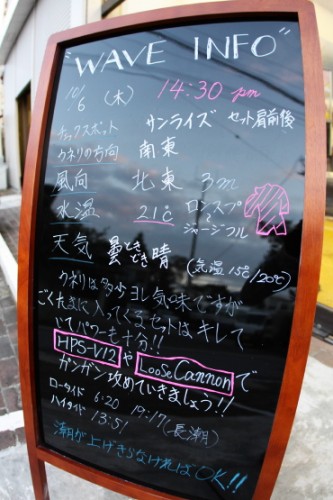 "WAVE INFO"
10/6 (木) 14:30 pm
チェックスポット サンライズ セット肩前後
ウネリの方向 南東
風向 北東 3m
水温 21℃ ロンスプ
ジャージフル
天気 曇ときどき晴 (気温 15℃/20℃)
ウネリは多少ヨレ気味ですが
ごくたまに入ってくるセットはキレて
いてパワーも十分!!
HPS-V12 や LooSe Cannon で
ガンガン攻めていきましょう!!
ロータイド 6:20 19:17 (長潮)
ハイタイド 13:51
潮が上げきらなければOK!!